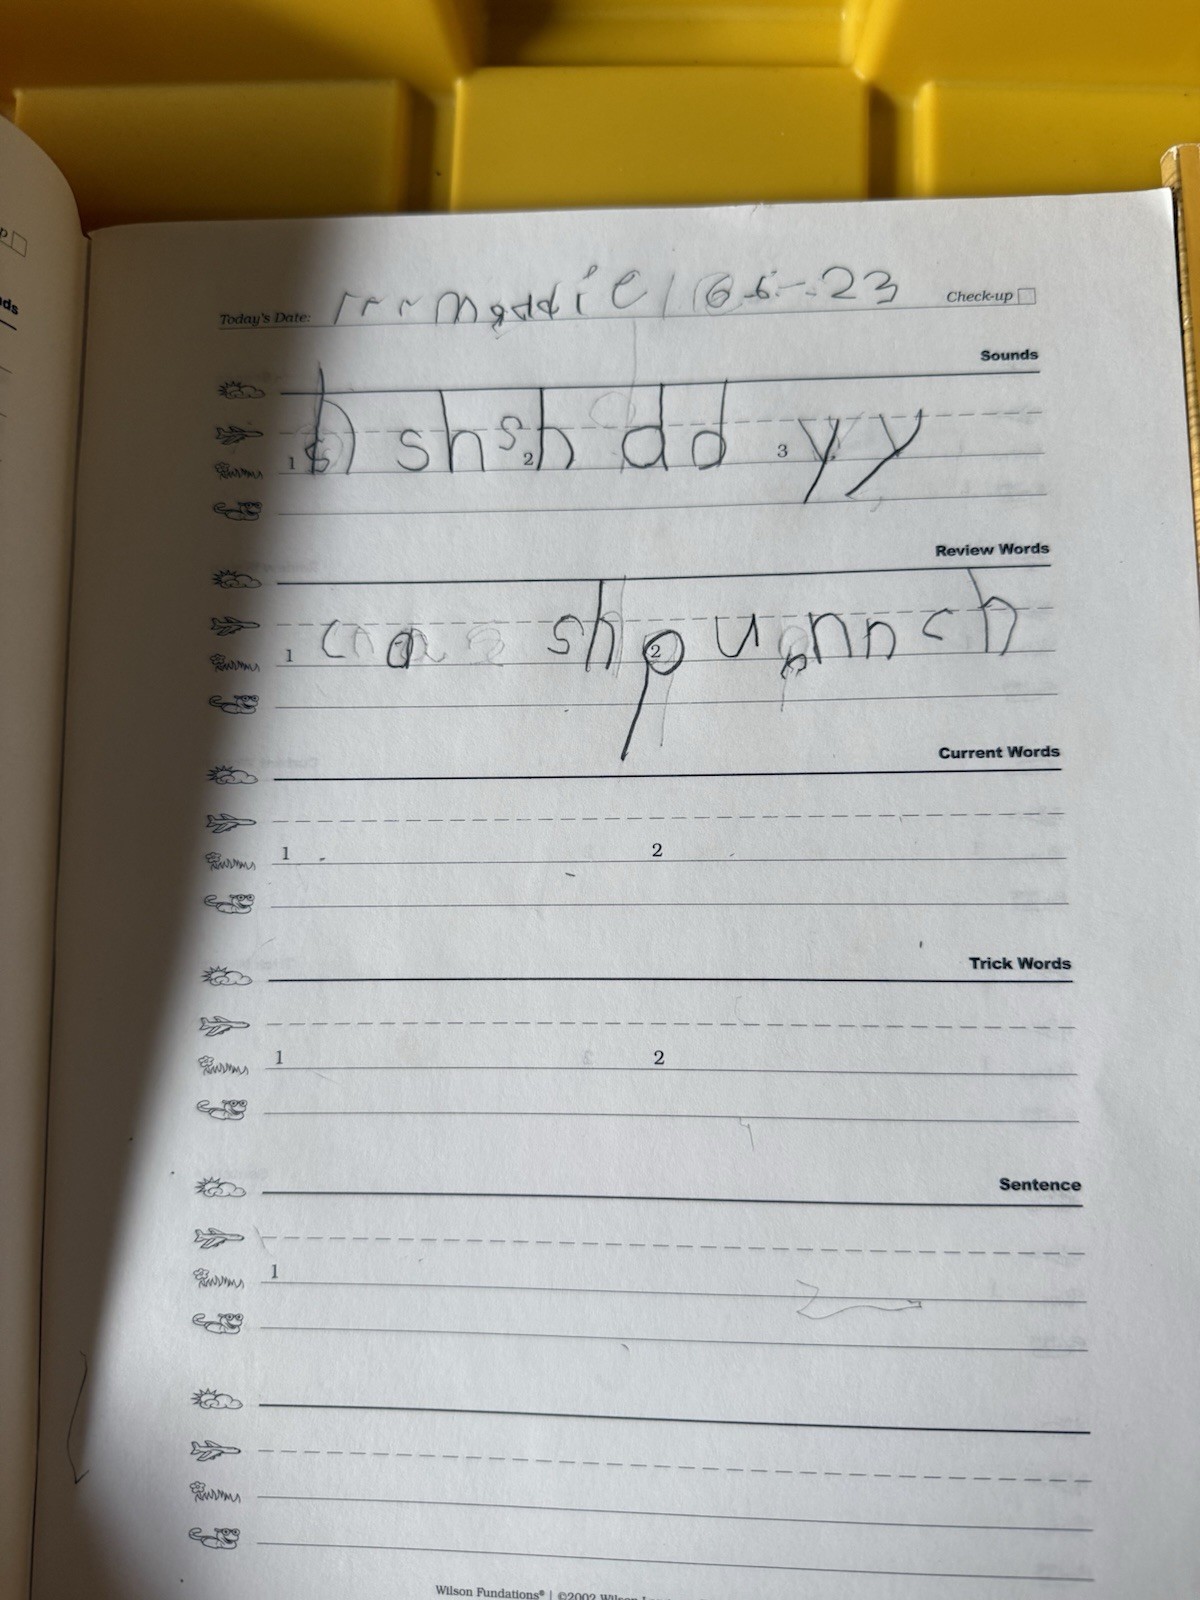 Today's Date: rrr maddie 6-6-23 Check-up
Sounds
1 sh sh 2 d d 3 y y
Review Words
1 sh 2 p u n n c h
Current Words
1 2
Trick Words
1 2
Sentence
1
Wilson Fundations® | ©2002 Wilson